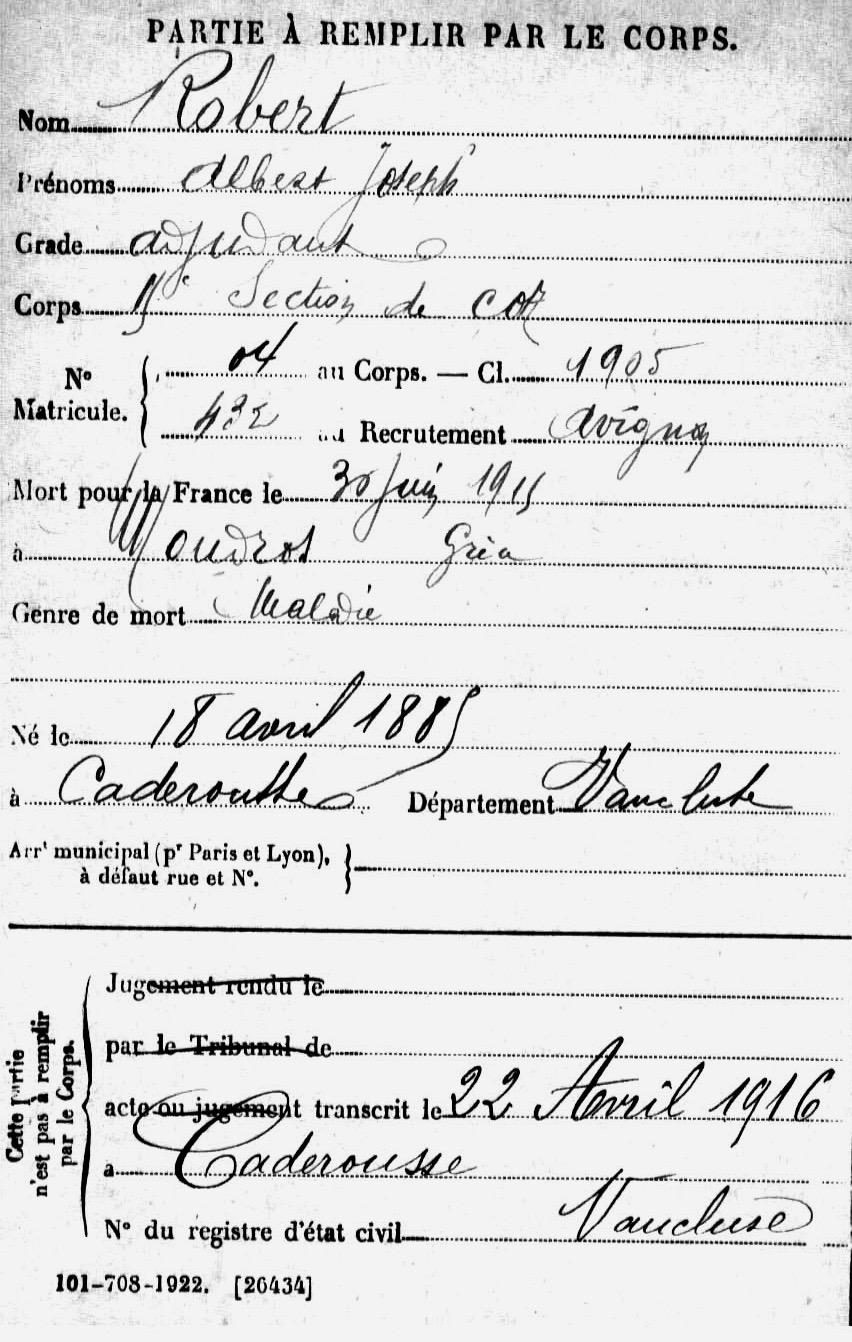 PARTIE À REMPLIR PAR LE CORPS.
Nom Robert
Prénoms Albert Joseph
Grade adjudant
Corps 15e Section de COA
N° Matricule. 04 au Corps. — Cl. 1905
432 au Recrutement Avignon
Mort pour la France le 30 Juin 1915
à Moudros
Genre de mort Maladie
Né le 18 avril 1885
à Caderousse Département Vaucluse
Arrt municipal (pr Paris et Lyon),
à défaut rue et N°.
Cette partie n'est pas à remplir par le Corps.
Jugement rendu le
par le Tribunal de
acte ou jugement transcrit le 22 Avril 1916
a Caderousse
N° du registre d'état civil Vaucluse
101-708-1922. [26434]